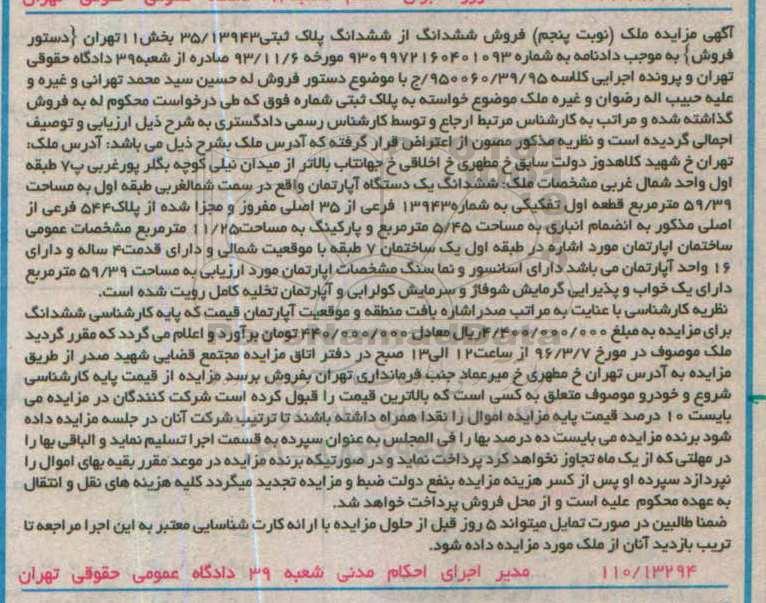 آگهی مزایده ملک (نوبت پنجم) فروش ششدانگ از ششدانگ پلاک ثبتی ۳۵/۱۳۹۴۳ بخش ۱۱تهران {دستور
فروش} به موجب دادنامه به شماره ۹۳۰۹۹۷۲۱۶۰۴۰۱۰۹۳ مورخه ۹۳/۱۱/۶ صادره از شعبه۳۹ دادگاه حقوقی
تهران و پرونده اجرایی کلاسه ۹۵۰۰۶۰/۳۹/۹۵/ج با موضوع دستور فروش له حسین سید محمد تهرانی و غیره و
علیه حبیب اله رضوان و غیره ملک موضوع خواسته به پلاک ثبتی شماره فوق که طی درخواست محکوم له به فروش
گذاشته شده و مراتب به کارشناس مرتبط ارجاع و توسط کارشناس رسمی دادگستری به شرح ذیل ارزیابی و توصیف
اجمالی گردیده است و نظریه مذکور مصون از اعتراض قرار گرفته که آدرس ملک بشرح ذیل می باشد: آدرس ملک:
تهران خ شهید کلاهدوز دولت سابق خ مطهری خ اخلاقی خ جهانتاب بالاتر از میدان نیلی کوچه بگلر پورغربی پ۷ طبقه
اول واحد شمال غربی مشخصات ملک: ششدانگ یک دستگاه آپارتمان واقع در سمت شمالغربی طبقه اول به مساحت
۵۹/۳۹ مترمربع قطعه اول تفکیکی به شماره۱۳۹۴۳ فرعی از ۳۵ اصلی مفروز و مجزا شده از پلاک۵۴۴ فرعی از
اصلی مذکور به انضمام انباری به مساحت ۵/۴۵ مترمربع و پارکینگ به مساحت۱۱/۲۵ مترمربع مشخصات عمومی
ساختمان اپارتمان مورد اشاره در طبقه اول یک ساختمان ۷ طبقه با موقعیت شمالی و دارای قدمت۴ ساله و دارای
۱۶ واحد آپارتمان می باشد دارای آسانسور و نما سنگ مشخصات اپارتمان مورد ارزیابی به مساحت ۵۹/۳۹ مترمربع
دارای یک خواب و پذیرایی گرمایش شوفاژ و سرمایش کولرابی و آپارتمان تخلیه کامل رویت شده است.
نظریه کارشناسی با عنایت به مراتب صدراشاره بافت منطقه و موقعیت آپارتمان قیمت که پایه کارشناسی ششدانگ
برای مزایده به مبلغ ۴/۴۰۰/۰۰۰/۰۰۰ ریال معادل ۴۴۰/۰۰۰/۰۰۰ تومان برآورد و اعلام می گردد که مقرر گردید
ملک موصوف در مورخ ۹۶/۳/۷ از ساعت۱۲ الی۱۳ صبح در دفتر اتاق مزایده مجتمع قضایی شهید صدر از طریق
مزایده به آدرس تهران خ مطهری خ میرعماد جنب فرمانداری تهران بفروش برسد مزایده از قیمت پایه کارشناسی
شروع و خودرو موصوف متعلق به کسی است که بالاترین قیمت را قبول کرده است شرکت کنندگان در مزایده می
بایست ۱۰ درصد قیمت پایه مزایده اموال را نقدا همراه داشته باشند تا ترتیب شرکت آنان در جلسه مزایده داده
شود برنده مزایده می بایست ده درصد بها را فی المجلس به عنوان سپرده به قسمت اجرا تسلیم نماید و الباقی بها را
در مهلتی که از یک ماه تجاوز نخواهد کرد پرداخت نماید و در صورتیکه برنده مزایده در موعد مقرر بقیه بهای اموال را
نپردازد سپرده او پس از کسر هزینه مزایده بنفع دولت ضبط و مزایده تجدید میگردد کلیه هزینه های نقل و انتقال
به عهده محکوم علیه است و از محل فروش پرداخت خواهد شد.
ضمنا طالبین در صورت تمایل میتواند ۵ روز قبل از حلول مزایده با ارائه کارت شناسایی معتبر به این اجرا مراجعه تا
تریب بازدید آنان از ملک مورد مزایده داده شود.
۱۱۰/۱۳۲۹۴ مدیر اجرای احکام مدنی شعبه ۳۹ دادگاه عمومی حقوقی تهران